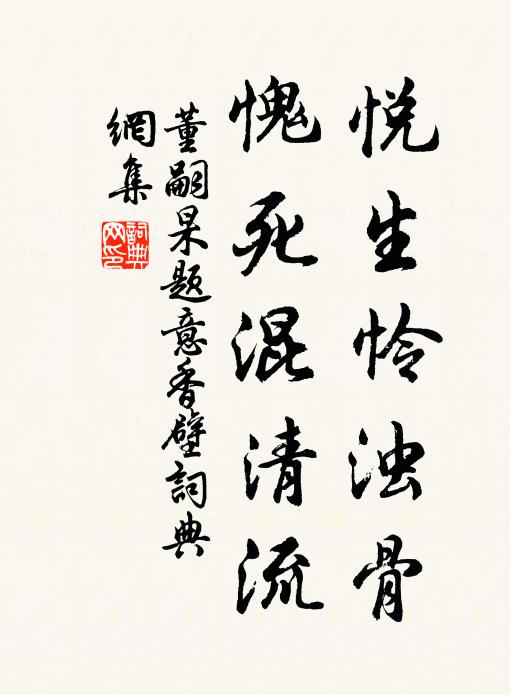 悦生怜浊骨
愧死混清流
董嗣杲题意香壁詞典
網集
詞典网印